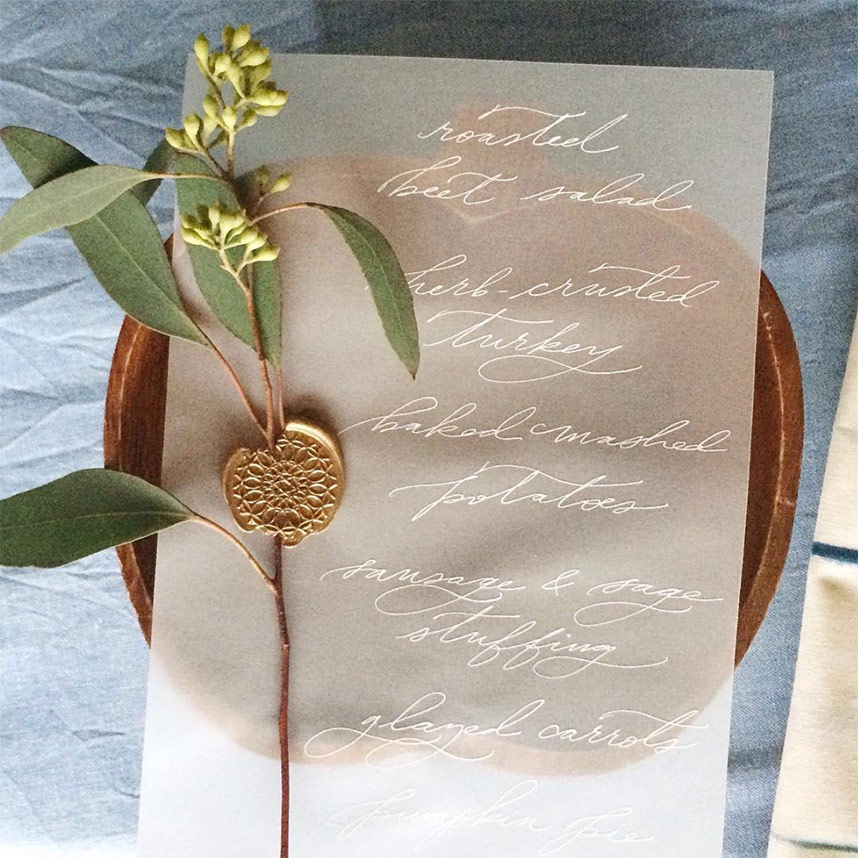 roasted
beet salad
herb-crusted
turkey
baked mashed
potatoes
sausage & sage
stuffing
glazed carrots
pumpkin pie